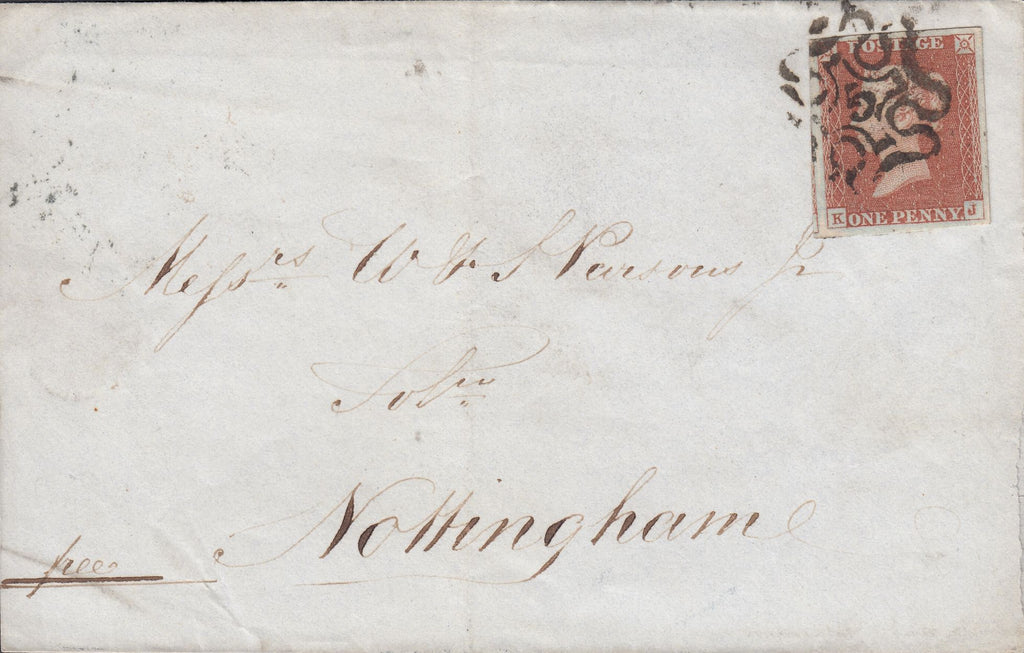 POSTAGE
5
K ONE PENNY J
Messrs W & S Parsons Jr
Solrs
Nottingham
free